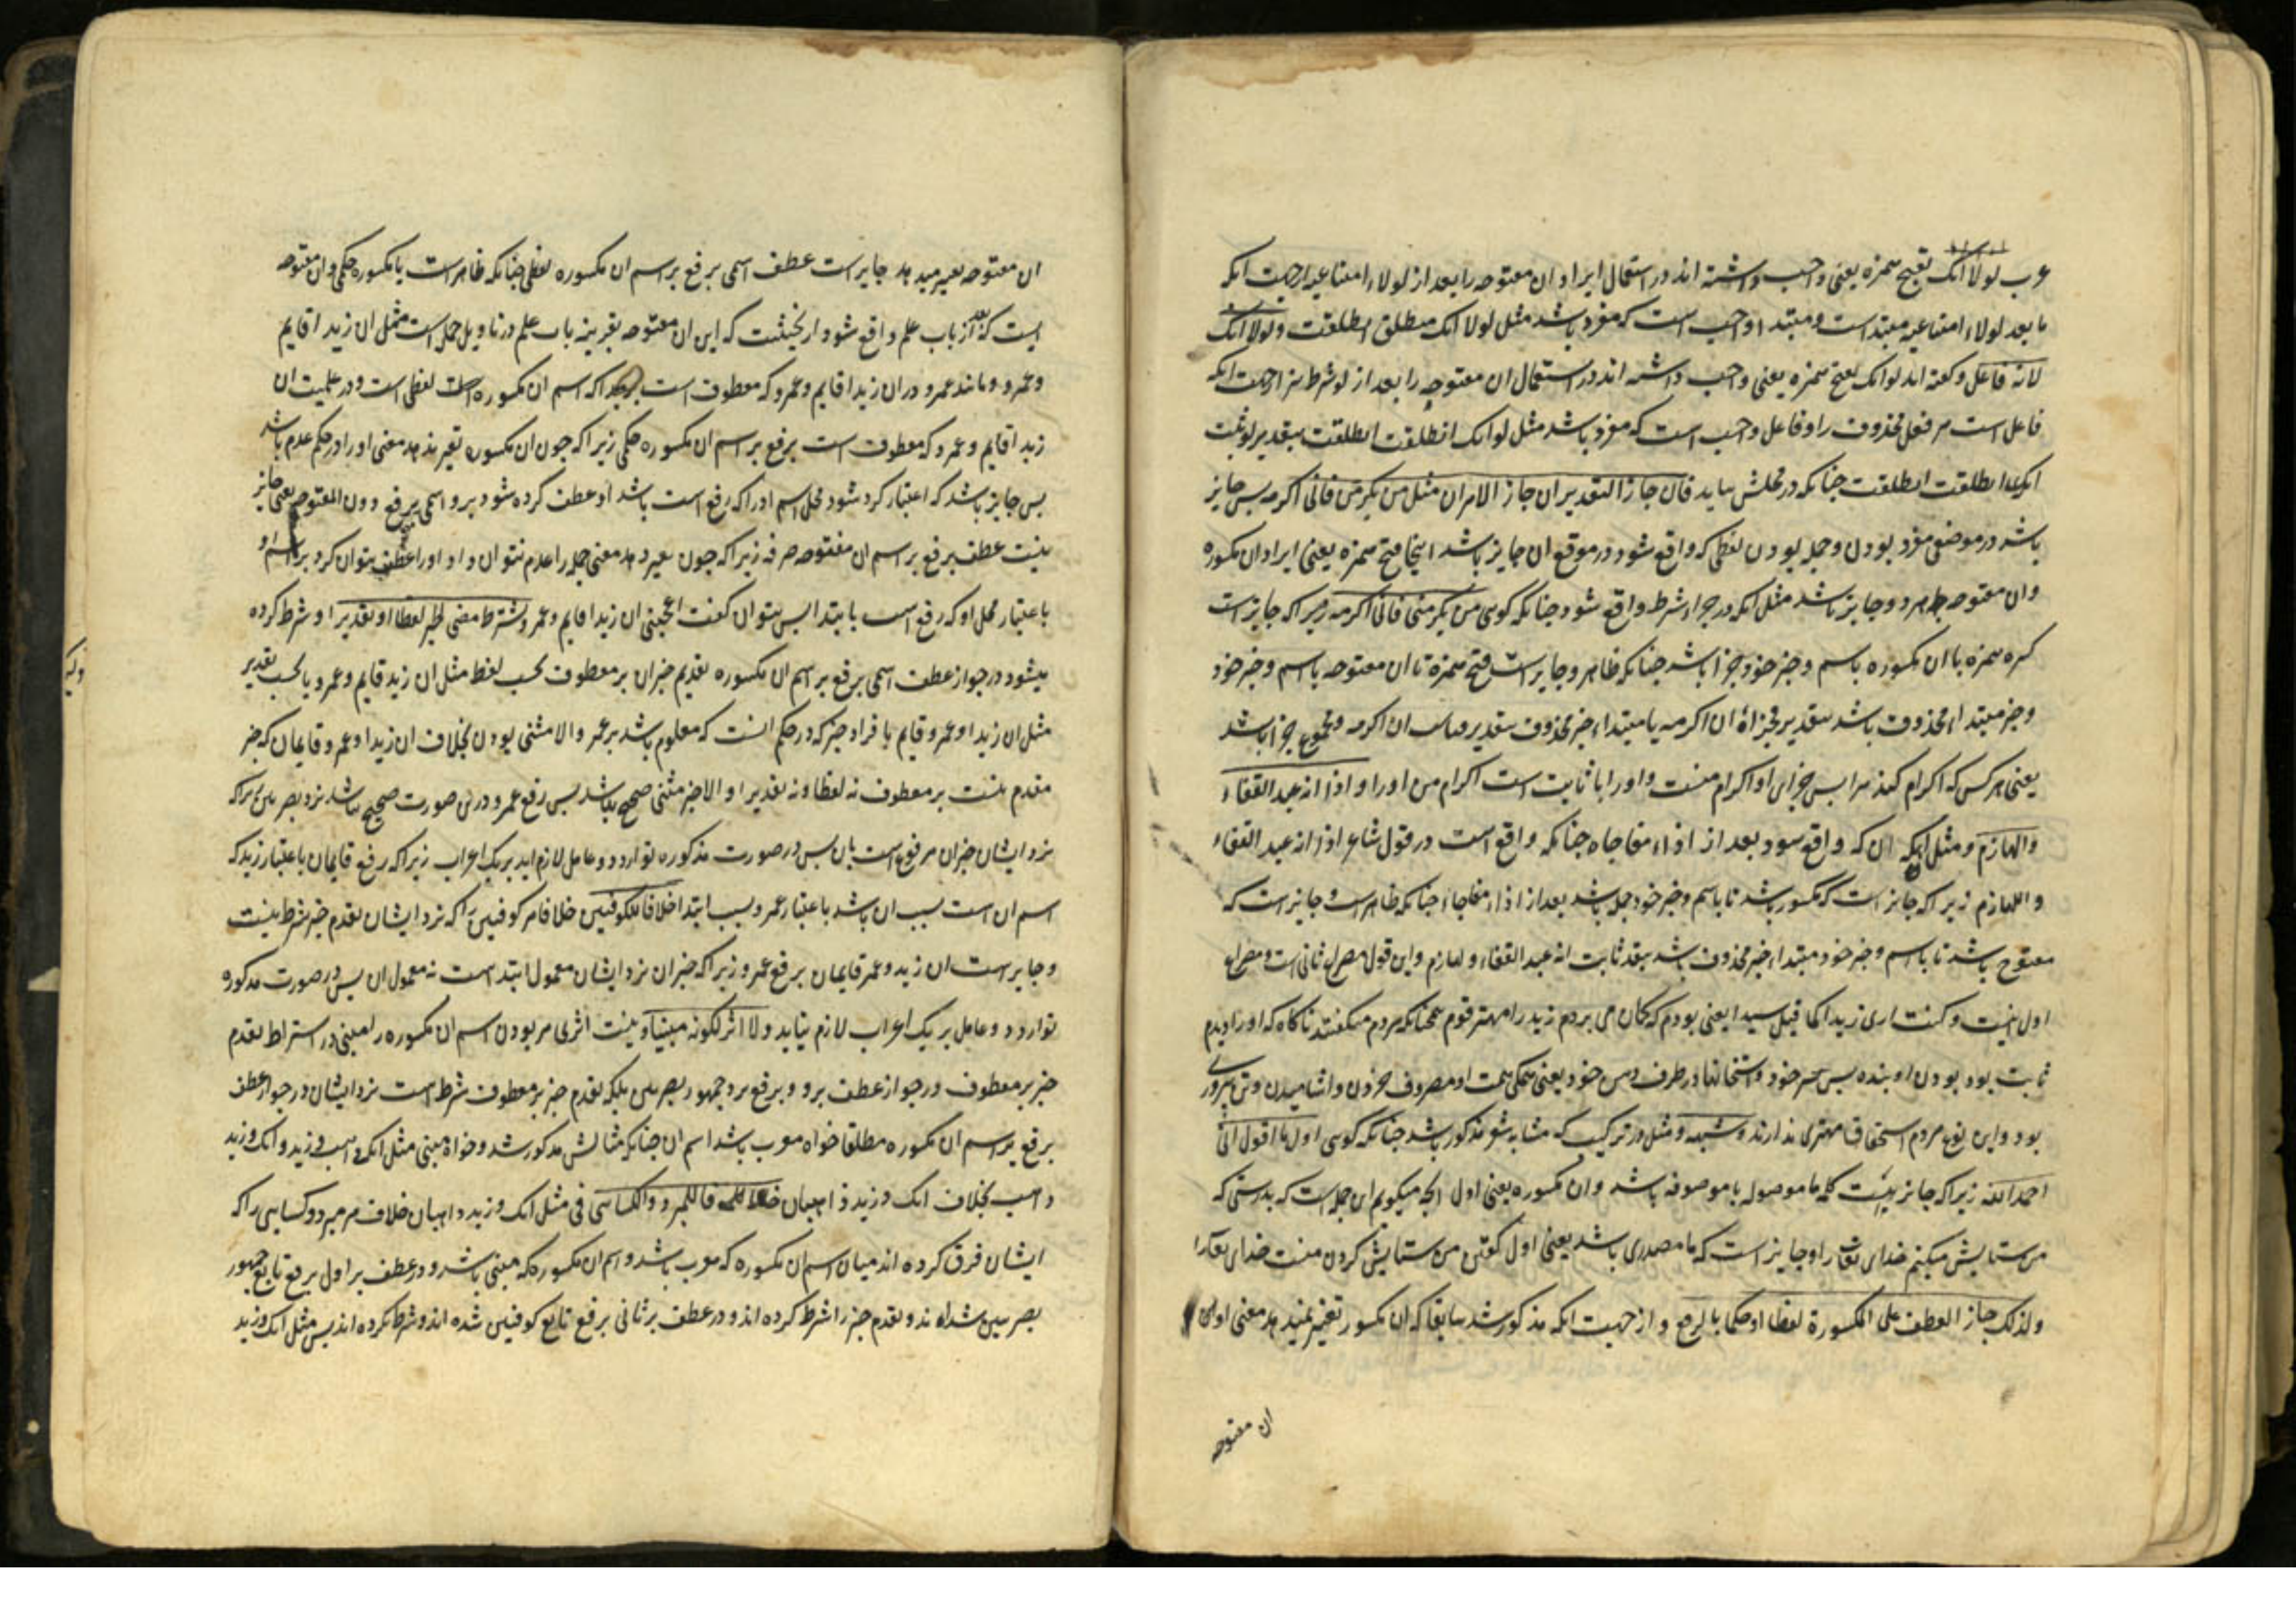 عرب لولا انک بفتح همزه یعنی واجب داشته اند در استعمال ایراد ان مفتوحه را بعد از لولاء امتناعیه ازجهت انکه
ما بعد لولاء امتناعیه مبتدا است و مبتدا واجب است که مفرد باشد مثل لولا انک منطلق انطلقت و لولا انک
لانه فاعل و گفته اند لو انک بفتح همزه یعنی واجب داشته اند در استعمال ان مفتوحه را بعد از لو شرط نیز ازجهت انکه
فاعل است مر فعل محذوف را و فاعل واجب است که مفرد باشد مثل لو انک انطلقت انطلقت بتقدیر لو ثبت
انک انطلقت انطلقت چنانکه در محلش بیاید فان جاز التقدیران جاز الامران مثل من یکرمنی فانی اکرمه پس جایز
باشد در موضعی مفرد بودن و جمله بودن لفظی که واقع شود در موقع ان جایز باشد اینجا فتح همزه یعنی ایراد ان مکسوره
وان مفتوحه هر دو جایز باشد مثل انکه در جزاء شرط واقع شود چنانکه کوی من یکرمنی فانی اکرمه زیراکه جایز است
کسره همزه با ان مکسوره باسم و خبر خود جزا باشد چنانکه ظاهر و جایز است فتح همزه تا ان مفتوحه باسم و خبر خود
و خبر مبتداء محذوف باشد بتقدیر فجزاؤه ان اکرمه یا مبتداء خبر محذوف بتقدیر ان اکرمه و مجموع جزا باشد
یعنی هر کس که اکرام کند مرا پس جزای او اکرام منست و او را یا ثابت است اکرام من او را و اذا انه عبد القفاء
واللهازم و مثل انکه ان که واقع شود بعد از اذاء مفاجاه چنانکه واقع است در قول شاعر اذا انه عبد القفاء
و اللهازم زیراکه جایز است که مکسور باشد تا باسم و خبر خود جمله باشد بعد از اذاء مفاجاء چنانکه ظاهر است و جایز است که
مفتوح باشد تا باسم و خبر خود مبتداء خبر محذوف باشد بتقدیر ثابت انه عبد القفاء و لهازم و این قول مصراع ثانی است و مصراع
اول اینست و کنت اری زیدا کما قیل سیدا یعنی بودم که کمان می بردم زید را مهتر قوم همچنانکه مردم میکفتند ناکاه که او را دیدم
ثابت بود بودن او بنده پس سر خود و استخوانها در طرف دهن خود یعنی همکی همت او مصروف خوردن و اشامیدن و تن پروری
بود و این نوع مردم استحقاق مهتری ندارند و شبهه و مثل در ترکیب که مشابه شعر مذکور باشد چنانکه کوی اول ما اقول انی
احمد الله زیراکه جایز است کلمه ما موصوله یا موصوفه باشد و ان مکسوره یعنی اول انچه میکویم این جمله است که بدرستی که
من ستایش میکنم خدای تعالی را و جایز است که ما مصدری باشد یعنی اول کفتن من ستایش کردن منست خدای تعالی را
ولذلک جاز العطف علی المکسورة لفظا او حکما بالرفع و از جهت انکه مذکور شد سابقا که ان مکسور تغییر نمیدهد معنی اول
ان مفتوحه
ان مفتوحه تغییر میدهد جایز است عطف اسمی برفع بر اسم ان مکسوره لفظی چنانکه ظاهر است یا مکسوره حکمی و ان مفتوحه
ایست که بعد از باب علم واقع شود از حیثیت که این ان مفتوحه بقرینه باب علم در تاویل جمله است مثل ان زیدا قایم
و عمرو و مانند عمرو در ان زیدا قایم و عمرو که معطوف است زیراکه اسم ان مکسوره است لفظی است و در علمت ان
زیدا قایم و عمرو که معطوف است برفع بر اسم ان مکسوره حکمی زیراکه چون ان مکسوره تغییر ندهد معنی او را در حکم عدم باشد
پس جایز باشد که اعتبار کرده شود محل اسم او را که رفع است باشد او عطف کرده شود برو اسمی برفع دون المفتوحه یعنی جایز
نیست عطف برفع بر اسم ان مفتوحه صرفه زیراکه چون تغییر دهد معنی جمله را عدم نتوان داد او را عطف نتوان کرد بر اسم او
باعتبار محل او که رفع است بابتدا پس نتوان کفت اعجبنی ان زیدا قایم و عمرو و یشترط مضی الخبر لفظا او تقدیرا و شرط کرده
میشود در جواز عطف اسمی برفع بر اسم ان مکسوره تقدیم خبر ان بر معطوف بحسب لفظ مثل ان زیدا قایم و عمرو یا بحسب تقدیر
مثل ان زیدا و عمرو قایم بافراد خبر که در حکم انست که معلوم باشد بر عمرو والا مثنی بودن بخلاف ان زیدا و عمرو قایمان که خبر
مقدم نیست بر معطوف نه لفظا و نه تقدیرا و الا خبر مثنی صحیح نباشد پس رفع عمرو درین صورت صحیح نباشد نزد بصریین زیراکه
نزد ایشان خبر ان مرفوع است بان پس در صورت مذکوره توارد دو عامل لازم اید بر یک اعراب زیراکه رفع قایمان باعتبار زید که
اسم ان است بسبب ان باشد و باعتبار عمرو بسبب ابتدا خلافا للکوفیین خلافا مر کوفیین را که نزد ایشان تقدم خبر شرط نیست
و جایز است ان زید و عمر قایمان برفع عمرو زیراکه خبر ان نزد ایشان معمول ابتدا است نه معمول ان پس در صورت مذکوره
توارد دو عامل بر یک اعراب لازم نیاید ولا اثر لکونه مبنیا و نیست اثری مر بودن اسم ان مکسوره را مبنی در اشتراط تقدم
خبر بر معطوف در جواز عطف برو و برفع نزد جمهور بصریین بلکه تقدم خبر بر معطوف شرط است نزد ایشان در جواز عطف
برفع بر اسم ان مکسوره مطلقا خواه معرب باشد اسم ان چنانکه مثالش مذکور شد و خواه مبنی مثل انک ذاهب و زید و انک و زید
ذاهب بخلاف انک و زید ذاهبان خلافا للمبرد والکسائی فی مثل انک و زید ذاهبان خلاف مر مبرد و کسایی راکه
ایشان فرق کرده اند میان اسم ان مکسوره که معرب باشد و اسم ان مکسوره که مبنی باشد و در عطف بر اول برفع تابع جمهور
بصریین شده اند و تقدم خبر را شرط کرده اند و در عطف بر ثانی برفع تابع کوفیین شده اند و شرط نکرده اند پس مثل انک و زید